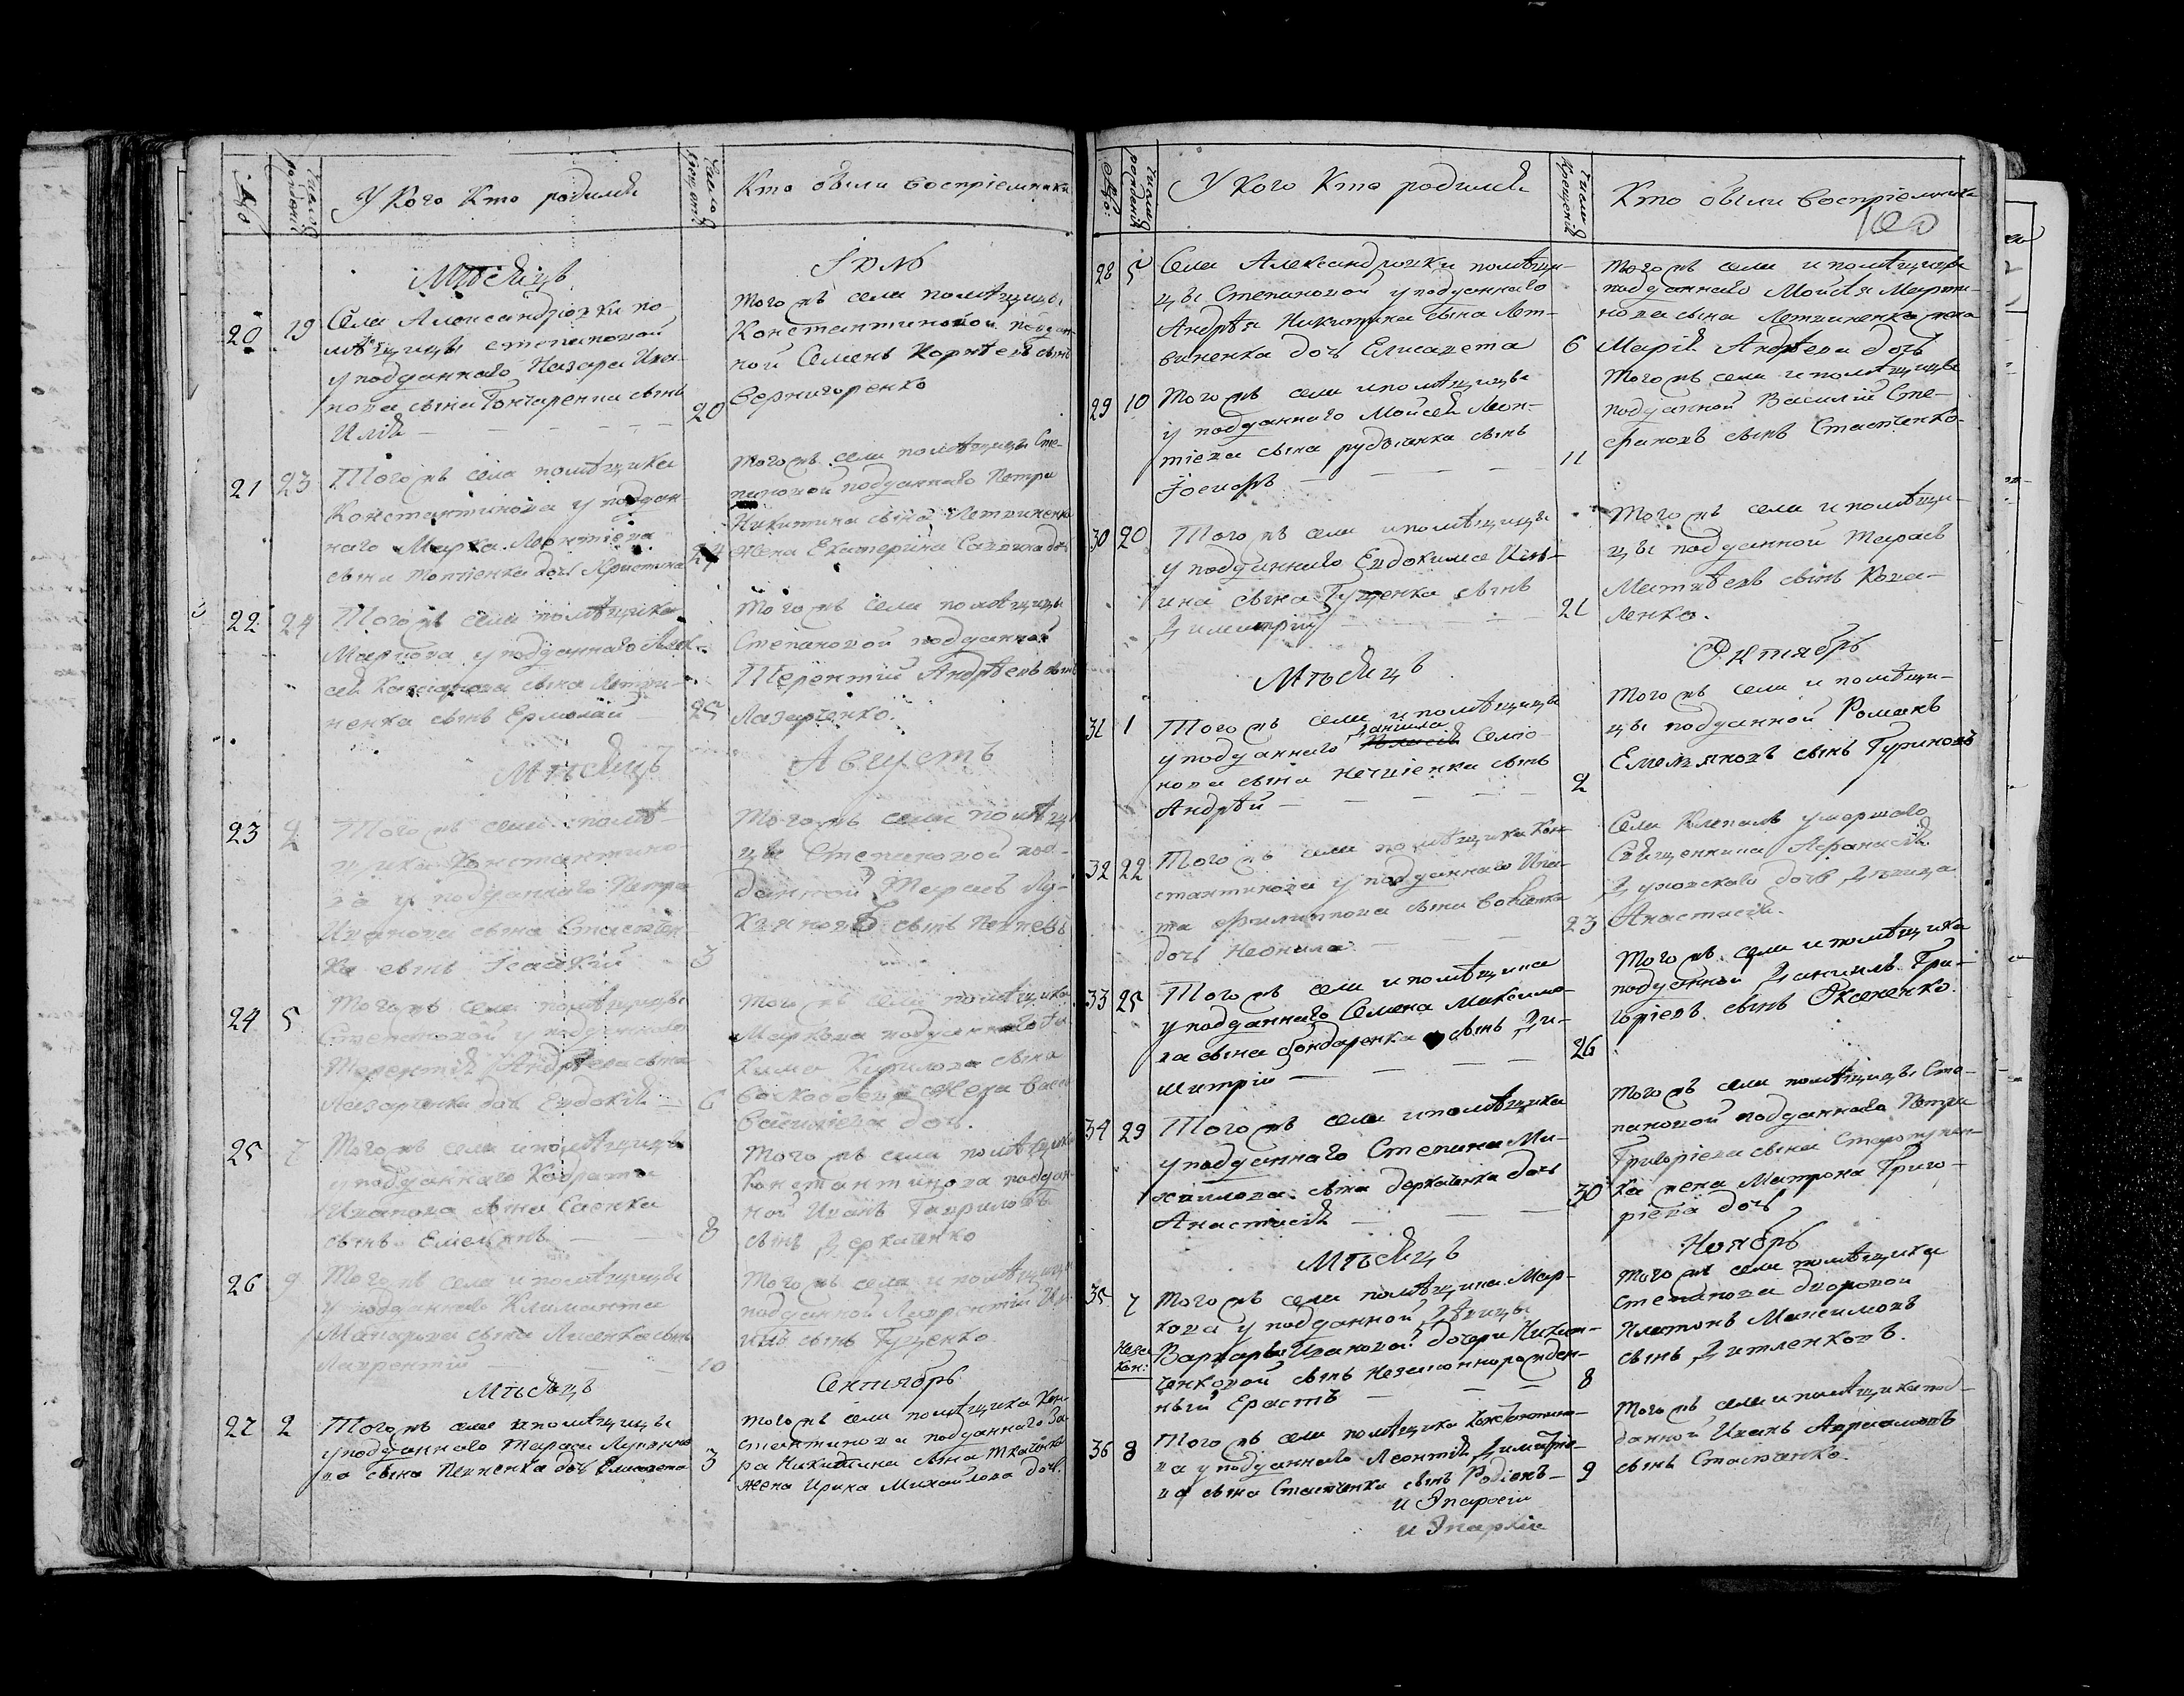 №
Число рожденія
У Кого Кто родился
Число крещенія
Кто были восприемники
Мѣсяцъ
Іюль
20
19
Села Александровки по-
мѣщицы Степановой
у подданнаго Назара Ива-
нова сына Гончаренка сынъ
Илія
20
того жъ села помѣщицы
Константиновой поддан-
ной Семенъ Корнѣевъ сынъ
Вернигоренко
21
23
Того жъ села помѣщика
Константинова у поддан-
наго Марка Леонтіева
сына Топчіенка дочь Христина
24
того жъ села помѣщицы Сте-
пановой подданнаго Петра
Никитина сына Литвиненка
жена Екатерина Саввина дочь
22
24
Того жъ села помѣщика
Маркова у подданнаго Алек-
сѣя Касіанова сына Литви-
ненка сынъ Ермолай
25
Того жъ села помѣщицы
Степановой подданной
Терентій Андрѣевъ сынъ
Лазаренко.
Мѣсяцъ
Августъ
23
2
Того жъ села помѣ-
щика Константино-
ва у подданнаго Петра
Иванова сына Стасѣен-
ка сынъ Ісаакій
3
Того жъ села помѣщи-
цы Степановой под-
данной Тарасъ Лу-
кяновъ сынъ
24
5
Того жъ села помѣщицы
Степановой у подданнаго
Терентія Андрѣева сына
Лазаренка дочь Евдокія
6
того жъ села помѣщика
Маркова подданнаго Іа-
кима Кирилова сына
жена
Васильева дочь.
25
7
Того жъ села и помѣщицы
у подданнаго Кодрата
Иванова сына Саенка
сынъ Емельянъ
8
Того жъ села помѣщика
Константинова поддан-
ной Иванъ Гавриловъ
сынъ Деркаченко
26
9
Того жъ села и помѣщицы
у подданнаго Климента
Макарова сына Лисенка сынъ
Лаврентій
10
Того жъ села и помѣщицы
подданной Лаврентій
сынъ Гуценко
Мѣсяцъ
Сентябрь
27
2
Того жъ села и помѣщицы
у подданнаго Тараса Лукяно-
ва сына дочь Елисавета
3
того жъ села помѣщика Кон-
стантинова подданнаго За-
ра Никитина сына Ткаченка
жена Ирина Михайлова дочь.
№
Число рожденія
У Кого Кто родился
Число Крещенія
Кто были восприемники
28
5
Села Александровки помѣщи-
цы Степановой у подданнаго
Андрѣя Никитина сына Лит-
виненка дочь Елисавета
6
того жъ села и помѣщицы
подданнаго Мойсѣя Мирон-
нова сына Литвиненка жена
Марія Андрѣева дочь
29
10
Того жъ села и помѣщицы
у подданнаго Мойсея Леон-
тіева сына рудченка сынъ
Іосифъ
11
Того жъ села и помѣщицы
подданной Василій Сте-
фановъ сынъ Стасѣенко
30
20
Того жъ села и помѣщицы
у подданнаго Евдокима Иль-
ина сына Гуценка сынъ
Димитрій
21
Того жъ села и помѣщи-
цы подданной Тарасъ
Матвѣевъ сынъ Кова-
ленко.
Мѣсяцъ
Октябрь
31
1
Того жъ села и помѣщицы
Даніила
у подданнаго Семіо-
нова сына сынъ
Андрѣй
2
того жъ села и помѣщи-
цы подданной Романъ
Емельяновъ сынъ Гуриновъ
32
22
Того жъ села помѣщика Кон-
стантинова у подданнаго Игна-
та Филиппова сына Бовченка
дочь Неонила
23
Села Клепаль умершаго
Священника Афанасія
дочь Дѣвица
Анастасія.
33
25
Того жъ села и помѣщика
у подданнаго Семена Максимо-
ва сына бондаренка сынъ Ди-
митрій
26
Того жъ села и помѣщика
подданной Даніилъ Гри-
горіевъ сынъ Оксененко.
34
29
Того жъ села и помѣщика
у подданнаго Степана Ми-
хаилова сына деркаченка дочь
Анастасія
30
Того жъ села помѣщицы Сте-
пановой подданнаго Петра
Григоріева сына
ка жена Матрона Григо-
ріева дочь
Мѣсяцъ
Ноябрь
35
7
Неза-
кон:
Того жъ села помѣщика Мар-
кова у подданной Дѣвицы
Варвары Ивановой дочери Никит-
ченковой сынъ Незаконнорожден-
ный Ерастъ
8
Того жъ села помѣщика
Степанова дворовой
Платонъ Максимовъ
сынъ Дитленковъ.
36
8
Того жъ села помѣщика Константино-
ва у подданнаго Леонтія Димитріе-
ва сына Стасѣенка сынъ Родіонъ
9
Того жъ села и помѣщика под-
данной Иванъ Авраамовъ
сынъ Стасѣенко.